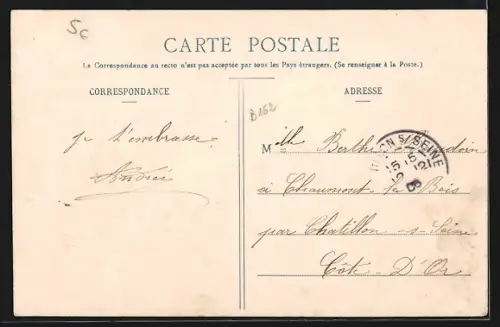 56
CARTE POSTALE
La Correspondance au recto n'est pas acceptée par tous les Pays étrangers. (Se renseigner à la Poste.)
CORRESPONDANCE
ADRESSE
B162
je t'embrasse
Mlle Berthe
à Chaumont le Bois
par Chatillon-s-Seine
Côte-D'Or
S/SEINE